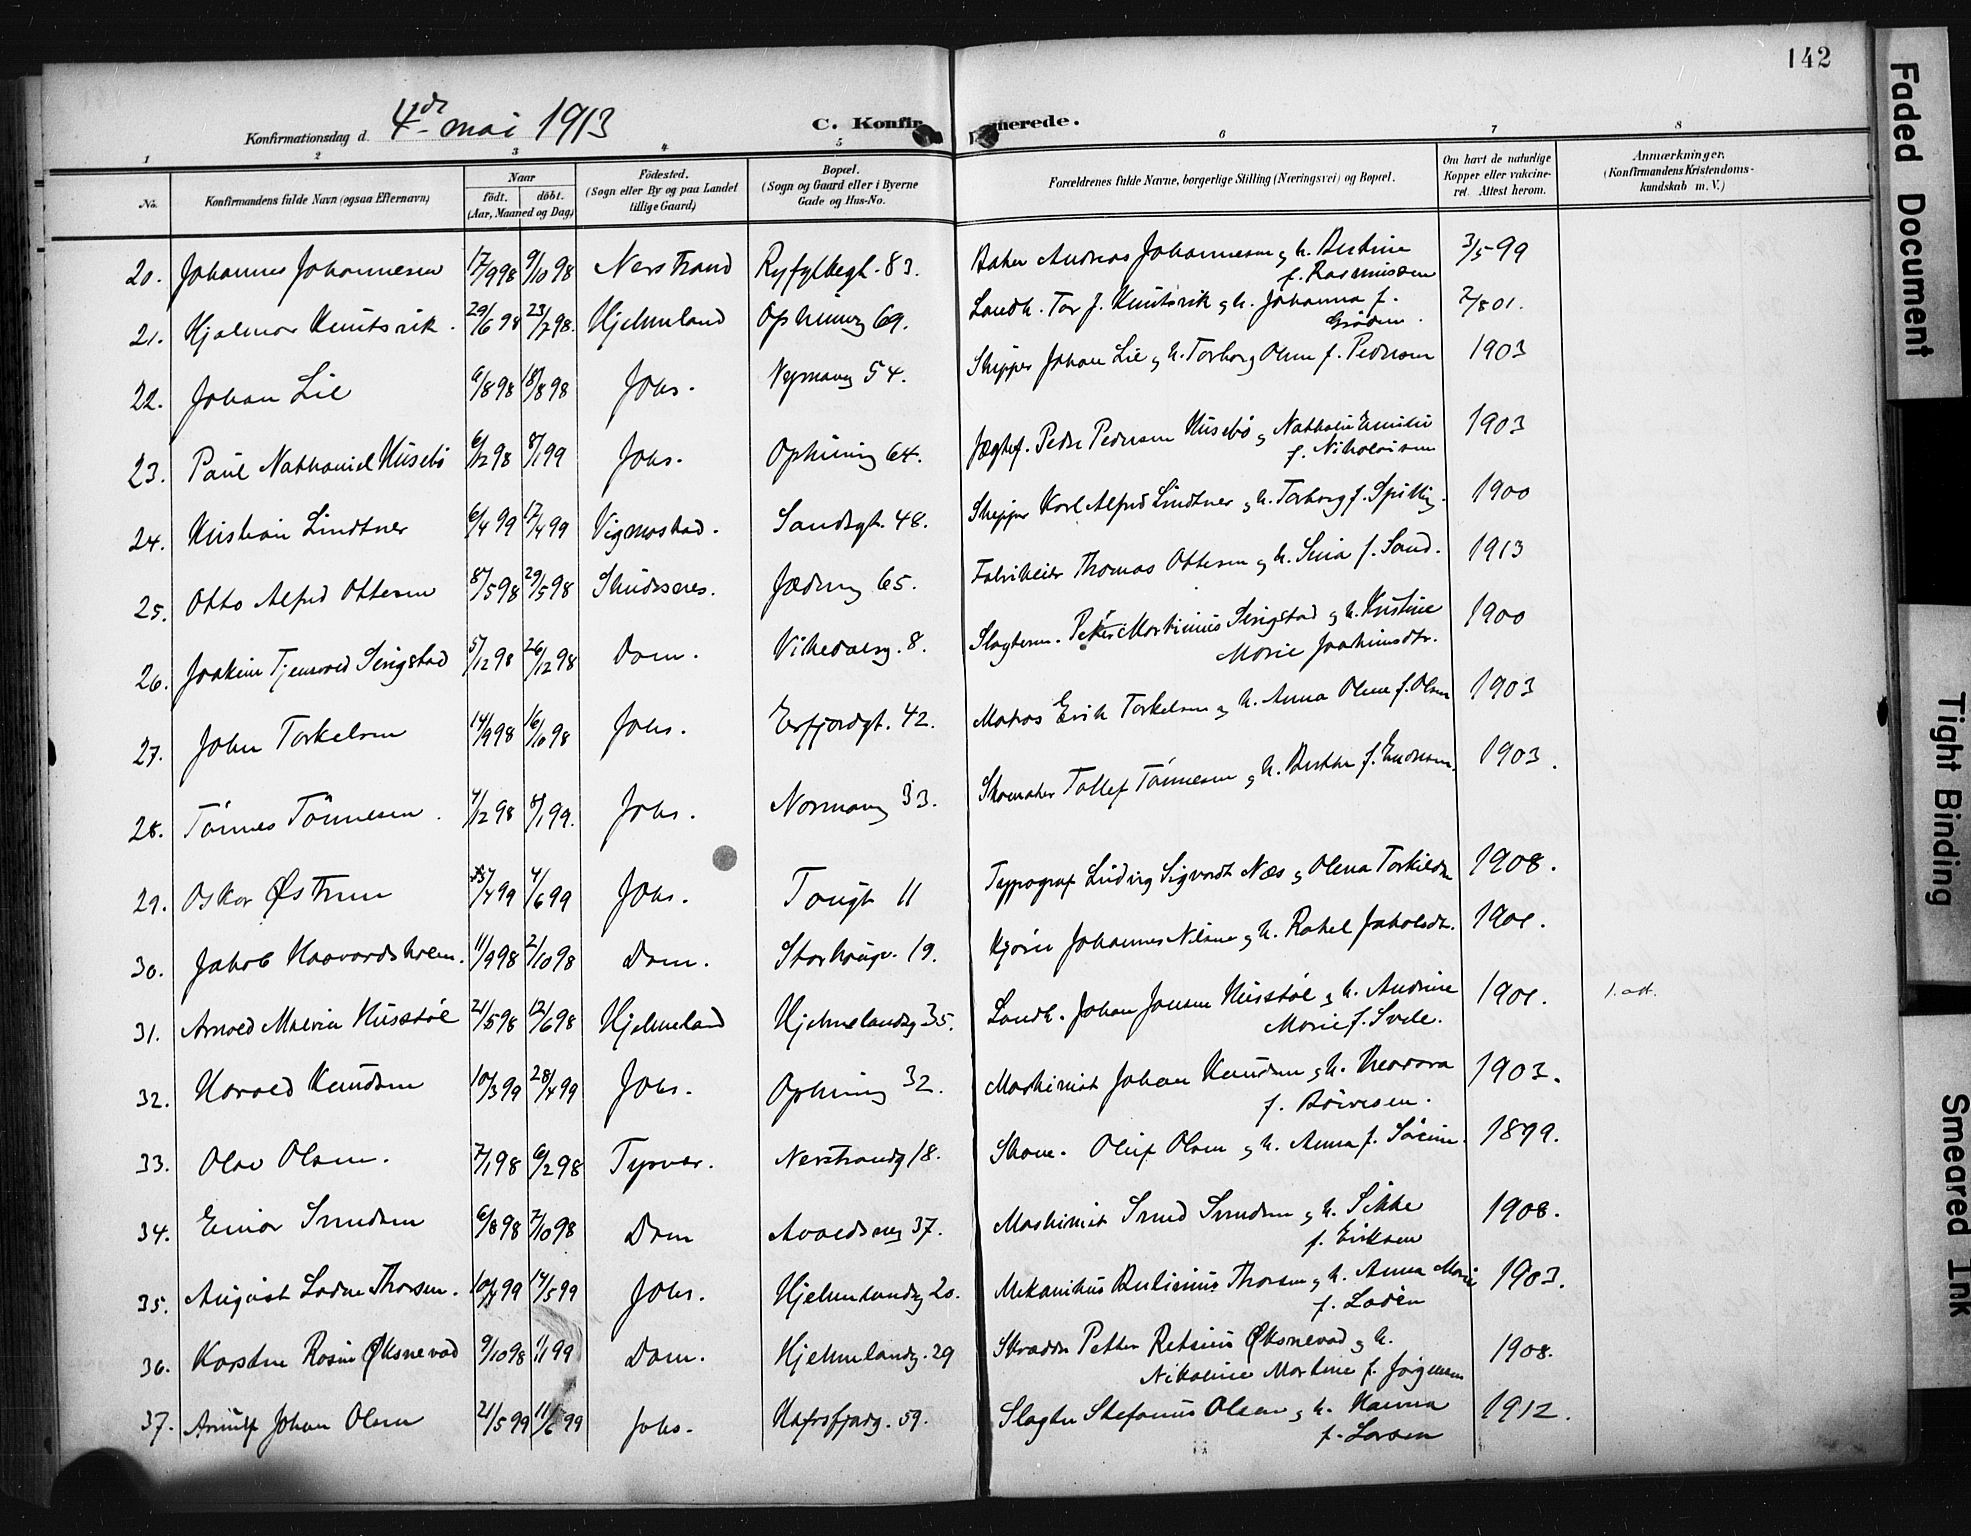 142
Konfirmationsdag d. 4de mai 1913
C. Konfirmerede.
1 2 3 4 5 6 7 8
No. Konfirmandens fulde Navn (ogsaa Efternavn) Naar født. døbt. (Aar, Maaned og Dag) Fødested. (Sogn eller By og paa Landet tillige Gaard) Bopæl. (Sogn og Gaard eller i Byerne Gade og Hus-No. Forældrenes fulde Navne, borgerlige Stilling (Næringsvei) og Bopæl. Om havt de naturlige Kopper eller vakcineret. Attest herom. Anmærkninger. (Konfirmandens Kristendomskundskab m. V.)
20. Johannes Johannesen 17/9 98 9/10 98 Nerstrand Ryfylkegt. 83. Baker Andreas Johannesen og h. Bertine f. Rasmussen 3/5 99
21. Hjalmar Knutsvik. 29/6 98 23/7 98. Hjelmeland Opheimg 69. Landh. Tor J. Knutsvik og h. Johanna f. 7/8 01.
22. Johan Lie 6/8 98 18/8 98 Johs. Nymansg 54. Skipper Johan Lie og h. Torborg Olene f. Pedersen 1903
23. Paul Nathaniel Husebø 6/12 98 8/1 99 Johs. Opheimg 64. Jægtef. Peder Pedersen Husebø og Nathalie Emilie f. Nikolaisen 1903
24. Kristian Lindtner 6/4 99 17/4 99 Vigmostad. Sandsgt. 48. Skipper Karl Alfred Lindtner og h. Torborg f. Spillig. 1900
25. Otto Alfred Ottesen 8/5 98 29/5 98 Skudesnes. Jæderg 65. Fabrikeier Thomas Ottesen og h. Sina f. Sand. 1913
26. Joakim Tjensvold Serigstad 5/12 98 26/12 98 Dom. Vikedalsg. 8. Slagterm. Peter Martinius Serigstad og h. Kristine Marie Joachimsdtr. 1900
27. John Torkelsen 14/9 98 16/10 98 Johs. Erfjordgt. 42. Matros Erik Torkelsen og h. Anna Oline f. Olsen 1903
28. Tønnes Tønnesen. 4/12 98 8/1 99. Johs. Normansg 33. Skomaker Tollef Tønnesen og h. Berthe f. Endresen. 1903.
29. Oskar Østrem /4 99 4/6 99 Johs. Tougt 11 Typograf Ludvig Sigvardt Næs og Olena Torkildsen 1908.
30. Jakob Haavardsholm. 11/9 98 2/10 98 Dom. Storhaugv. 19. Kjører Johannes Nilsen og h. Rakel Jakobsdtr. 1901.
31. Arnold Malvin Husstøl 21/5 98 12/6 98 Hjelmeland Hjelmelandsg 35. Landh. Johan Jonsen Husstøl og h. Andrine Marie f. Svele. 1901. 1. att.
32. Harald Knudsen 10/3 99 28/4 99 Johs. Opheimg 32. Maskinist Johan Knudsen og h. Theodora f. Børresen. 1903.
33. Olav Olsen. 7/1 98 6/2 98 Tysvær. Nerstrandg 18. Skom. Oluf Olsen og h. Anna f. Sørine. 1899.
34. Einar Svendsen 6/8 98 7/10 98 Dom Avaldsneg 37. Maskinist Svend Svendsen og h. Sikke f. Eriksen 1908.
35. August Ladin Thorsen. 10/4 99 14/5 99 Johs. Hjelmelandsg 20. Mekanikus Bertinius Thorsen og h. Anna Marie f. Ladén 1903.
36. Karsten Rosin Øksnevad 9/10 98 1/1 99 Dom. Hjelmelandsg. 29 Skrædder Petter Retsius Øksnevad og h. Nikoline Martine f. Jørgensen 1908.
37. Arnulf Johan Olsen 21/5 99 11/6 99 Johs. Hafrsfjordg. 59. Slagter Stefanus Olsen og h. Hanna f. Larsen 1912.
Faded Document
Tight Binding
Smeared Ink